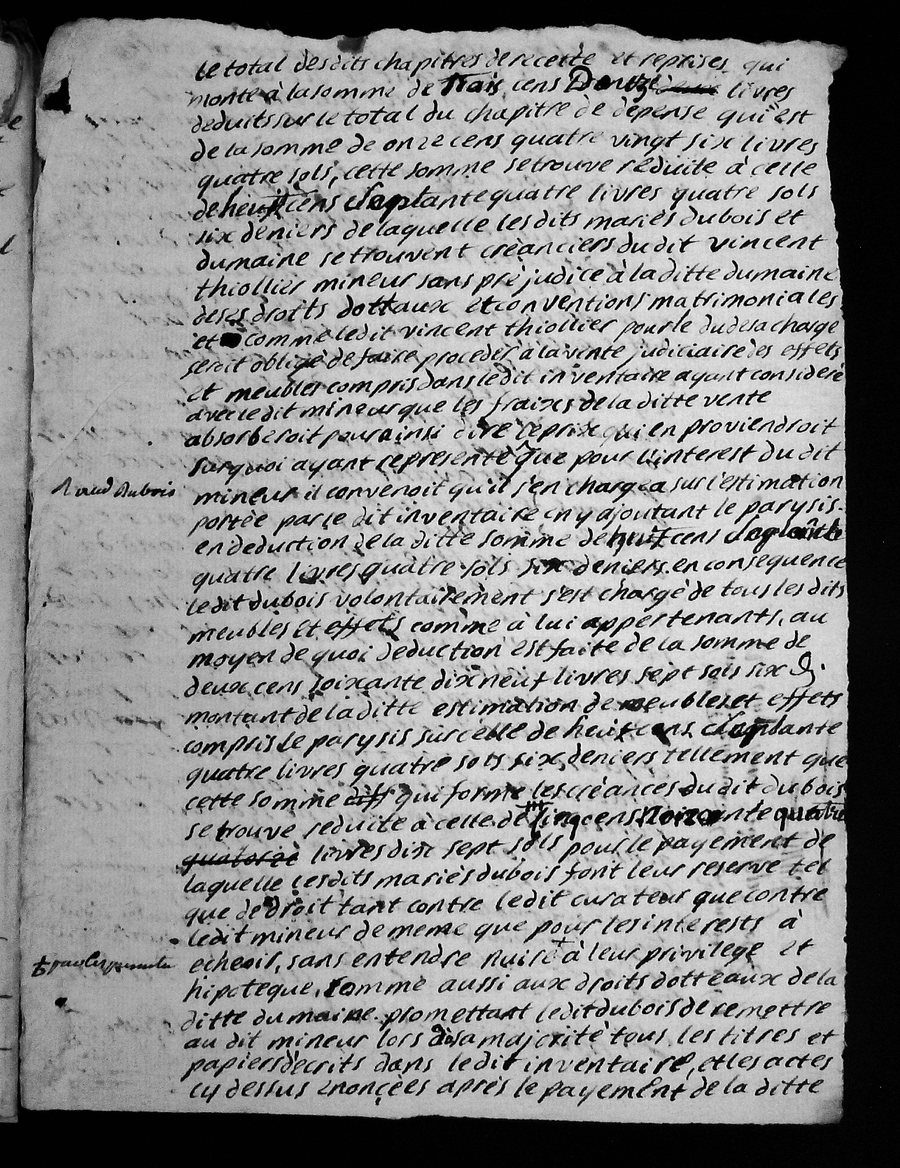 le total desdits chapitres de recette et reprises qui
monte à la somme de trois cens Douze deux livres
deduits sur le total du chapitre de dépense qui est
de la somme de onze cens quatre vingt six livres
quatre sols, cette somme se trouve réduite à celle
de heuit cens septante quatre livres quatre sols
six deniers de laquelle lesdits mariés dubois et
dumaine se trouvent créanciers dudit vincent
thiollier mineur sans préjudice à la ditte dumaine
de ses droits dottaux et conventions matrimoniales
et comme ledit vincent thiollier pour le du de sa charge
seroit obligé de faire proceder à la vente judiciaire des effets
et meubles compris dans ledit inventaire ayant considéré
avec ledit mineur que les fraixes de la ditte vente
absorberoit pour ainsi dire le prix qui en proviendroit
sur quoi ayant représenté que pour l'interest du dit
mineur il convenoit qu'il s'en chargea sur l'estimation
portée par le dit inventaire en y ajoutant le parysis
en deduction de la ditte somme de huit cens septante
quatre livres quatre sols six deniers, en consequence
ledit dubois volontairement s'est chargé de tous les dits
meubles et effets comme à lui appertenants, au
moyen de quoi deduction est faite de la somme de
deux cens soixante dix neuf livres sept sols six d.
montant de la ditte estimation de meubles et effets
compris le parysis sur celle de heuit cens septante
quatre livres quatre sols six deniers tellement que
cette somme diff qui forme les créances du dit dubois
se trouve reduite à celle de cinq cens nonante quatre
quatorze livres dix sept sols pour le payement de
laquelle lesdits mariés dubois font leur reserve tel
que de droit tant contre ledit curateur que contre
ledit mineur de meme que pour les interests à
echeoir, sans entendre nuire + à leur privilege et
hipoteque, comme aussi aux droits dotteaux de la
ditte dumaine promettant ledit dubois de remettre
au dit mineur lors de sa majorité tous les titres et
papiers décrits dans ledit inventaire, et les actes
cy dessus énoncées après le payement de la ditte
dubois